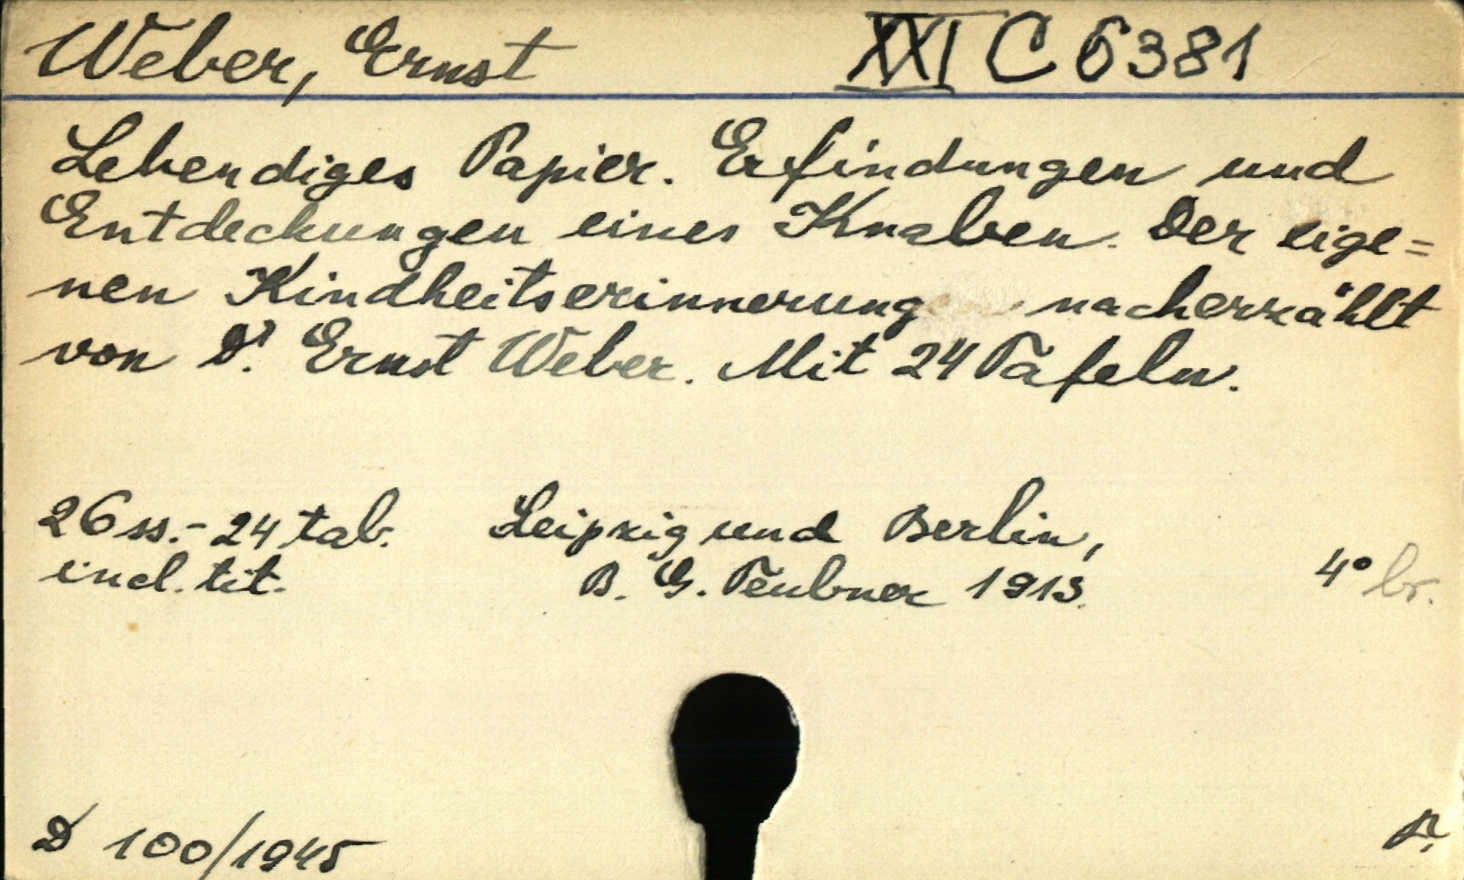 Weber, Ernst XXI C 6381
Lebendiges Papier. Erfindungen und
Entdeckungen eines Knaben. Der eige=
nen Kindheitserinnerung nacherzählt
von Dr. Ernst Weber. Mit 24 Tafeln.
26 ss. - 24 tab. Leipzig und Berlin,
incl. tit. B. G. Teubner 1913. 4° br.
D 100/1945